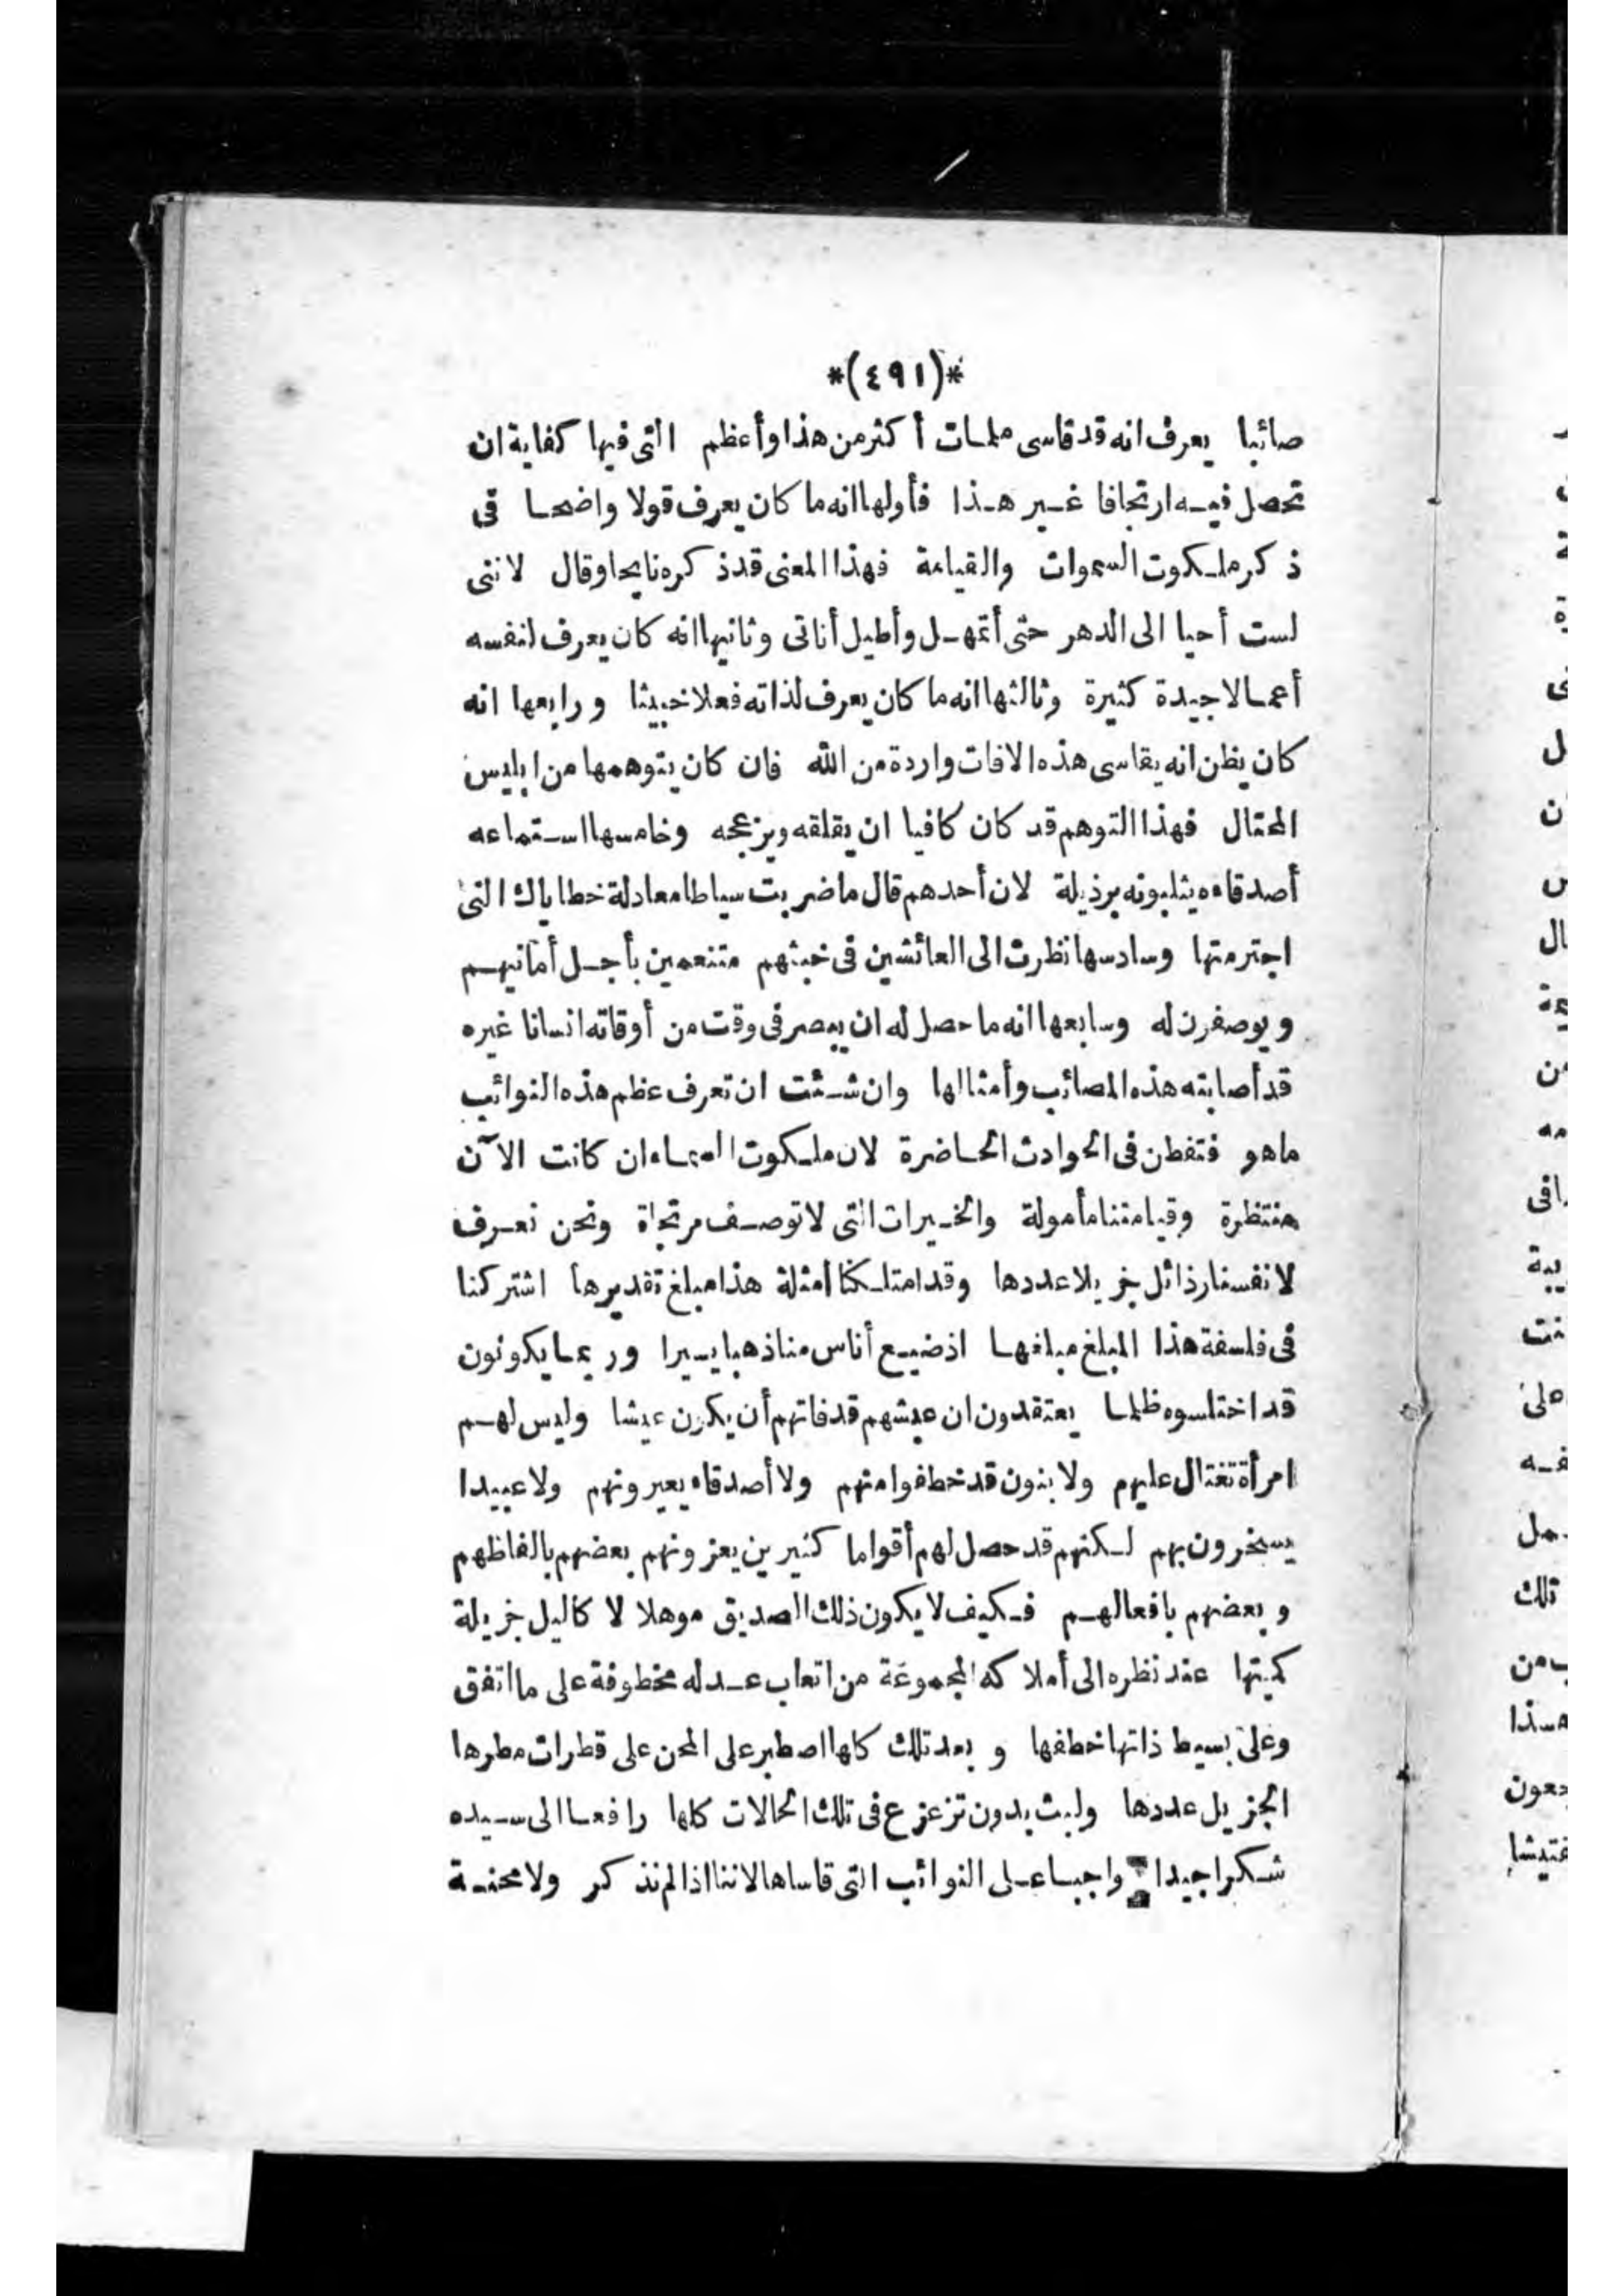 *(٤٩١)*
صائبا يعرف انه قد قاسى ملمات أكثر من هذا وأعظم التى فيها كفاية ان
تحصل فيه ارتجافا غير هذا فأولها انه ما كان يعرف قولا واضحا فى
ذكر ملكوت السموات والقيامة فهذا المعنى قد ذكره نايحا وقال لاننى
لست أحيا الى الدهر حتى أتمهل وأطيل أناتى وثانيها انه كان يعرف لنفسه
أعمالا جيدة كثيرة وثالثها انه ما كان يعرف لذاته فعلا خبيثا ورابعها انه
كان يظن انه يقاسى هذه الافات واردة من الله فان كان يتوهمها من ابليس
المحتال فهذا التوهم قد كان كافيا ان يقلقه ويزعجه وخامسها استماعه
أصدقاءه يثلبونه برذيلة لان أحدهم قال ما ضربت سياطا معادلة خطاياك التى
اجترمتها وسادسها نظرت الى العائشين فى خبثهم متنعمين بأجل أمانيهم
ويوصفرن له وسابعها انه ما حصل له ان يبصر فى وقت من أوقاته انسانا غيره
قد أصابته هذه المصائب وأمثالها وان شئت ان تعرف عظم هذه النوائب
ما هو فتفطن فى الحوادث الحاضرة لان ملكوت السماء ان كانت الآن
منتظرة وقيامتنا مأمولة والخيرات التى لا توصف مرتجاة ونحن نعرف
لانفسنا رذائل جزيلا عددها وقد امتلكنا أمثلة هذا مبلغ تقديرها اشتركنا
فى فلسفة هذا المبلغ مبلغها اذ ضيع أناس منا ذهبا يسيرا وربما يكونون
قد اختلسوه ظلما يعتقدون ان عيشهم قد فاتهم أن يكرن عيشا وليس لهم
امرأة تغتال عليهم ولا بنون قد خطفوا منهم ولا أصدقاء يعيرونهم ولا عبيدا
يسخرون بهم لكنهم قد حصل لهم أقواما كثيرين يعزونهم بعضهم بالفاظهم
وبعضهم بافعالهم فكيف لا يكون ذلك الصديق موهلا لا كاليل جزيلة
كميتها عند نظره الى أملاكه المجموعة من اتعاب عدله مخطوفة على ما اتفق
وعلى بسيط ذاتها خطفها وبعد تلك كلها اصطبر على المحن على قطرات مطرها
الجزيل عددها ولبث بدون تزعزع فى تلك الحالات كلها رافعا الى سيده
شكرا جيدا واجبا على النوائب التى قاساها لاننا اذا لم نذكر ولا محنة